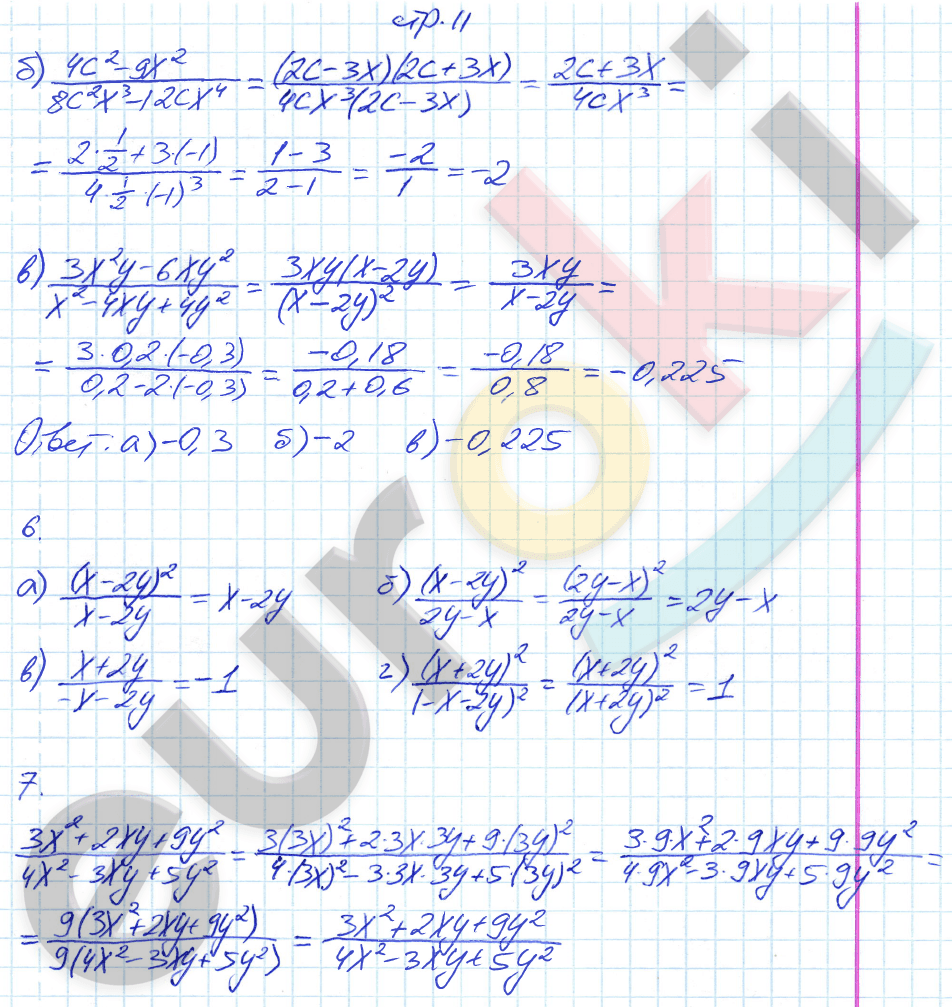 стр. 11
б) (4c² - 9x²)/(8c²x³ - 12cx⁴) = ((2c - 3x)(2c + 3x))/(4cx³(2c - 3x)) = (2c + 3x)/(4cx³) =
= (2·1/2 + 3·(-1))/(4·1/2·(-1)³) = (1 - 3)/(2 - 1) = -2/1 = -2
в) (3x²y - 6xy²)/(x² - 4xy + 4y²) = (3xy(x - 2y))/((x - 2y)²) = 3xy/(x - 2y) =
= (3·0,2·(-0,3))/(0,2 - 2·(-0,3)) = -0,18/(0,2 + 0,6) = -0,18/0,8 = -0,225
Ответ: а) -0,3 б) -2 в) -0,225
6.
а) (x - 2y)²/(x - 2y) = x - 2y б) (x - 2y)²/(2y - x) = (2y - x)²/(2y - x) = 2y - x
в) (x + 2y)/(-x - 2y) = -1 г) (x + 2y)²/(1-x - 2y)² = (x + 2y)²/(x + 2y)² = 1
7.
(3x² + 2xy + 9y²)/(4x² - 3xy + 5y²) = (3(3x)² + 2·3x·3y + 9·(3y)²)/(4·(3x)² - 3·3x·3y + 5·(3y)²) = (3·9x² + 2·9xy + 9·9y²)/(4·9x² - 3·9xy + 5·9y²) =
= (9(3x² + 2xy + 9y²))/(9(4x² - 3xy + 5y²)) = (3x² + 2xy + 9y²)/(4x² - 3xy + 5y²)
euroki